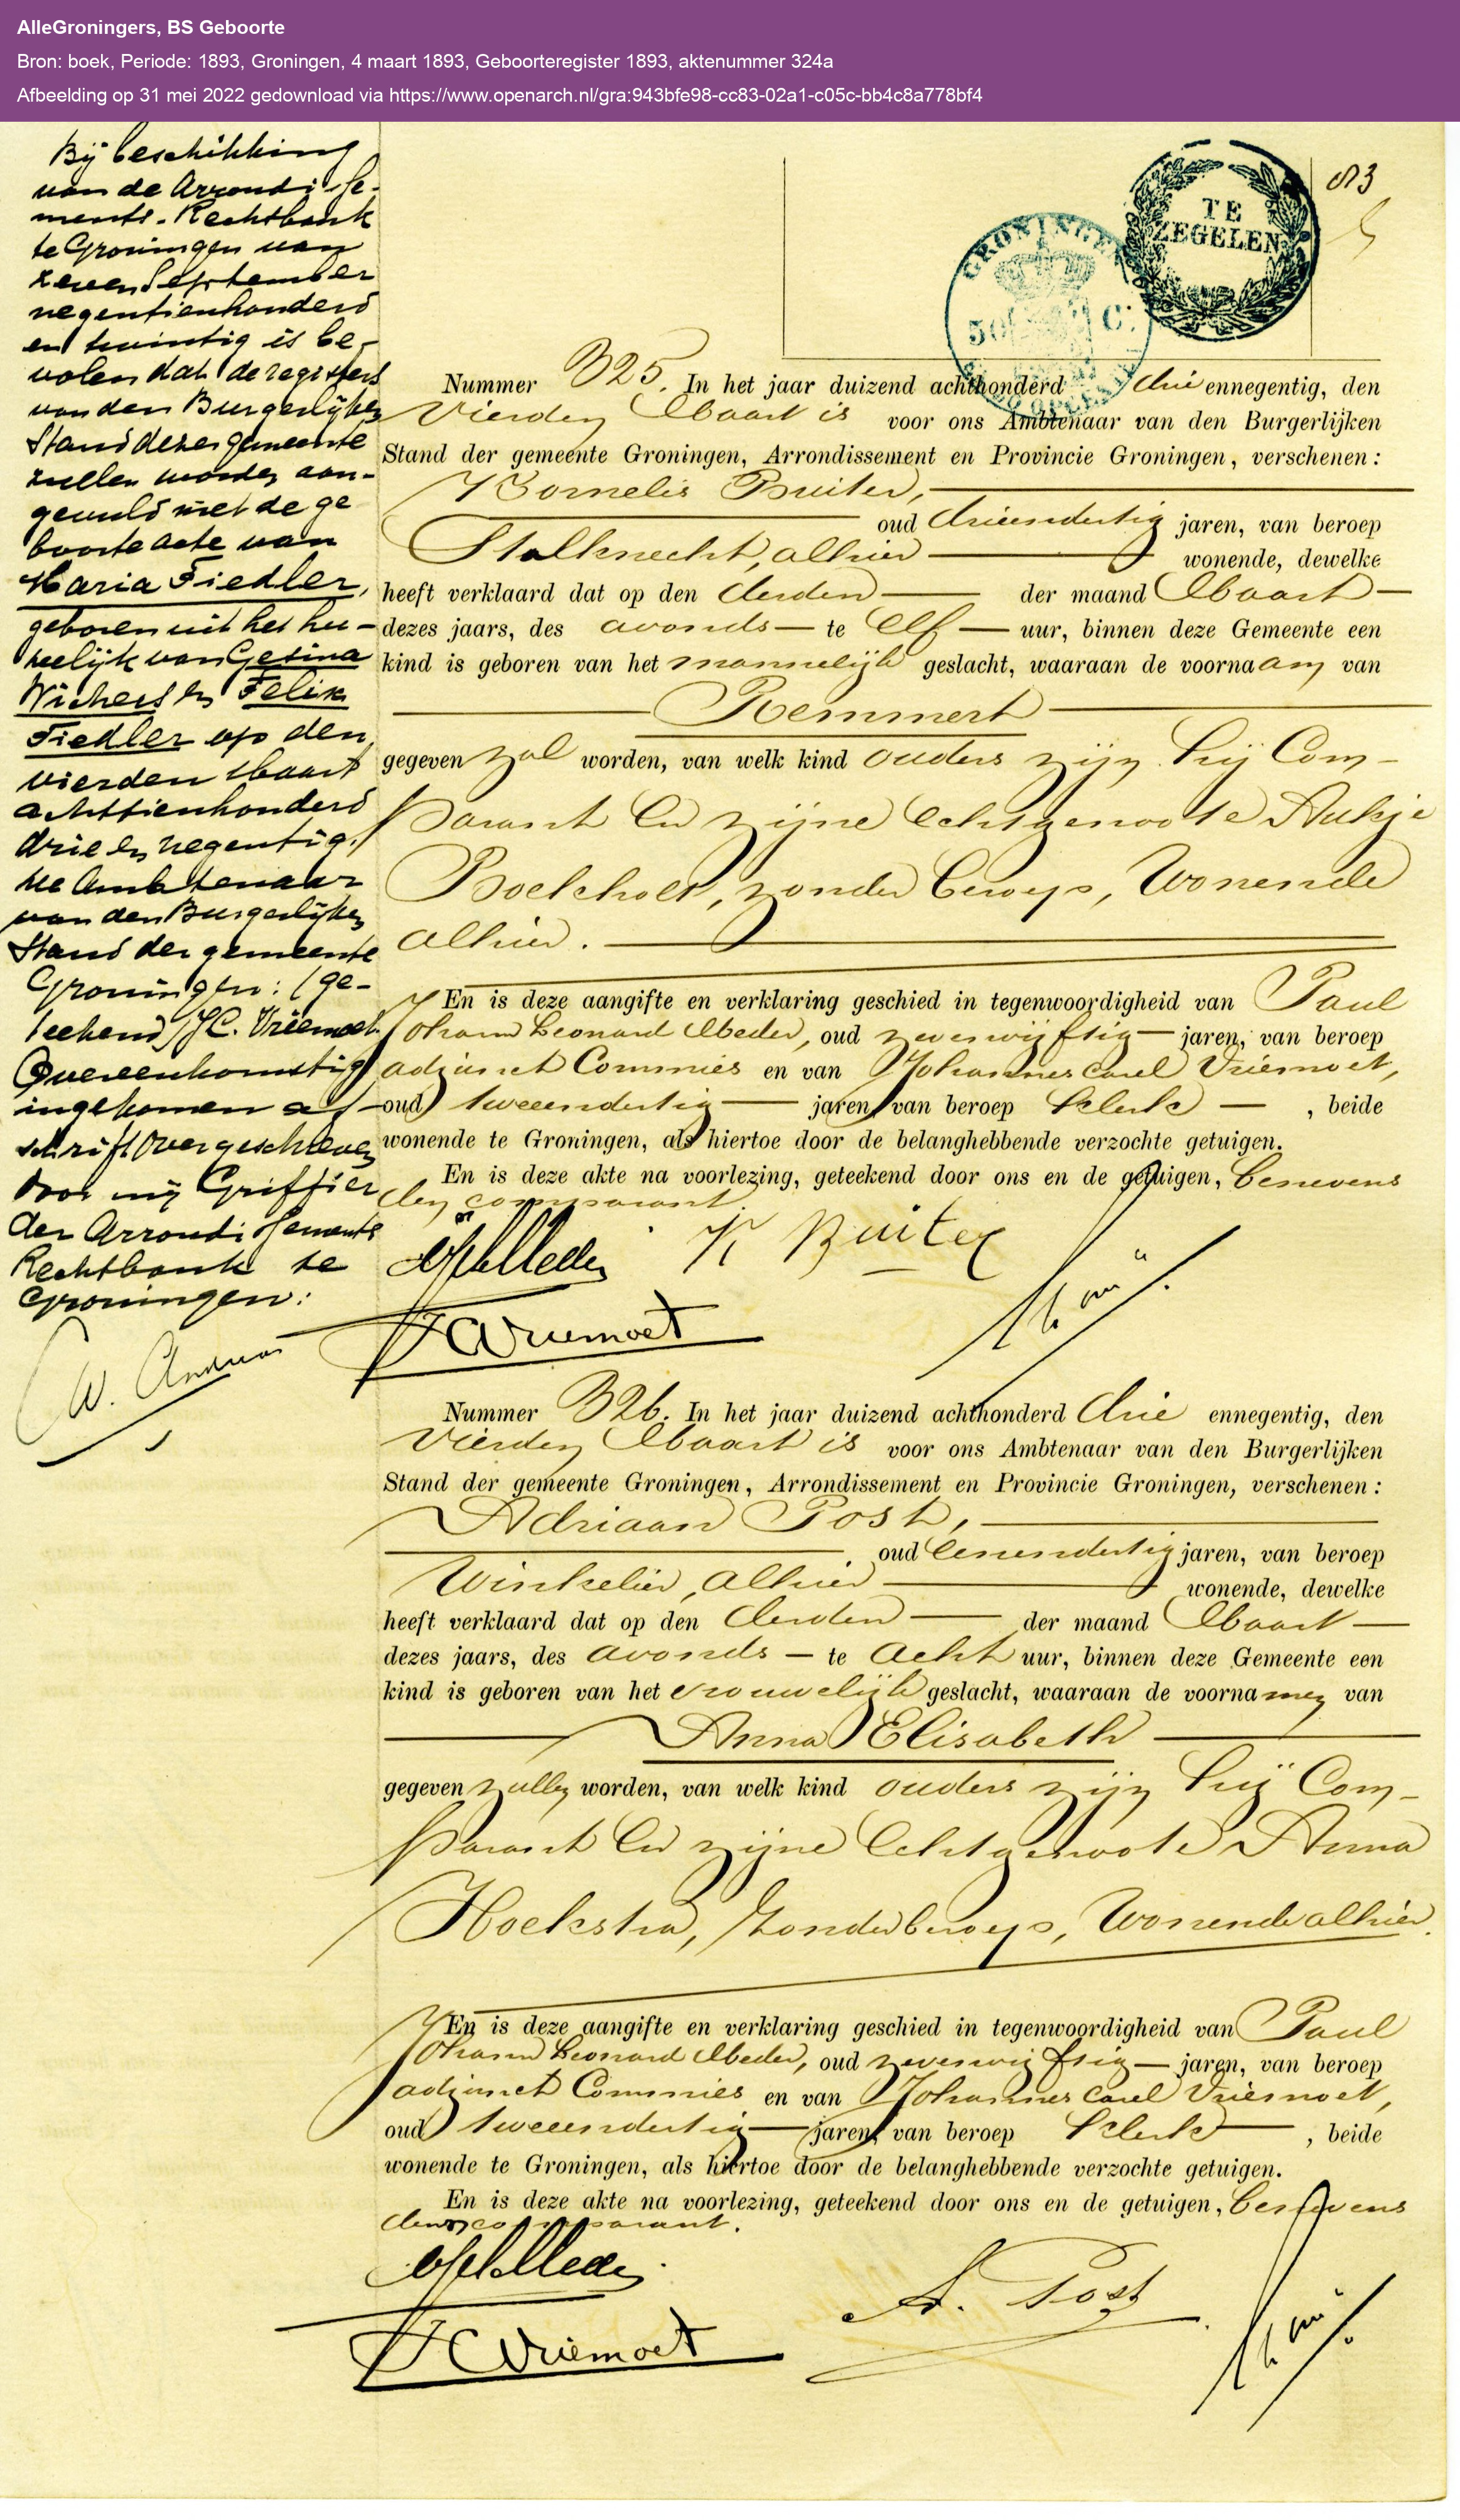 AlleGroningers, BS Geboorte
Bron: boek, Periode: 1893, Groningen, 4 maart 1893, Geboorteregister 1893, aktenummer 324a
Afbeelding op 31 mei 2022 gedownload via https://www.openarch.nl/gra:943bfe98-cc83-02a1-c05c-bb4c8a778bf4
Bij beschikking
van de Arrondisse-
ments-Rechtbank
te Groningen van
zeven September
negentienhonderd
en twintig is be-
volen dat de registers
van den Burgerlijken
Stand dezer gemeente
zullen worden aan-
gevuld met de ge
boorteacte van
Maria Fiedler,
geboren uit het hu-
welijk van Gesina
Wichers en Felix
Fiedler op den
vierden Maart
achttienhonderd
drie en negentig.
De Ambtenaar
van den Burgerlijken
Stand der gemeente
Groningen: (ge-
teekend) J.C. Vriemoet.
Overeenkomstig
ingekomen af-
schrift overgeschreven
door mij Griffier
der Arrondissements
Rechtbank te
Groningen:
TE
ZEGELEN
GRONINGEN
50 C.
Nummer 325. In het jaar duizend achthonderd drie ennegentig, den
Vierden Maart is voor ons Ambtenaar van den Burgerlijken
Stand der gemeente Groningen, Arrondissement en Provincie Groningen, verschenen:
Kornelis Buiter,
oud drieendertig jaren, van beroep
Stalknecht, alhier wonende, dewelke
heeft verklaard dat op den derden der maand Maart
dezes jaars, des avonds te Elf uur, binnen deze Gemeente een
kind is geboren van het mannelijk geslacht, waaraan de voornaam van
Remmert
gegeven zal worden, van welk kind ouders zijn hij Com-
parant en zijne Echtgenoote Aukje
Boekholt, zonder beroep, Wonende
alhier.
En is deze aangifte en verklaring geschied in tegenwoordigheid van Paul
Johann Leonard Meder, oud zevenvijftig jaren, van beroep
adjunct Commies en van Johannes Carel Vriemoet,
oud tweeendertig jaren, van beroep klerk, beide
wonende te Groningen, als hiertoe door de belanghebbende verzochte getuigen.
En is deze akte na voorlezing, geteekend door ons en de getuigen, benevens
den comparant.
K Buiter
JCVriemoet
Nummer 326. In het jaar duizend achthonderd drie ennegentig, den
Vierden Maart is voor ons Ambtenaar van den Burgerlijken
Stand der gemeente Groningen, Arrondissement en Provincie Groningen, verschenen:
Adriaan Post,
oud Eenendertig jaren, van beroep
Winkelier, alhier wonende, dewelke
heeft verklaard dat op den derden der maand Maart
dezes jaars, des avonds te Acht uur, binnen deze Gemeente een
kind is geboren van het vrouwelijk geslacht, waaraan de voornamen van
Anna Elisabeth
gegeven zullen worden, van welk kind ouders zijn hij Com-
parant en zijne Echtgenoote Anna
Hoekstra, zonder beroep, Wonende alhier.
En is deze aangifte en verklaring geschied in tegenwoordigheid van Paul
Johann Leonard Meder, oud zevenvijftig jaren, van beroep
adjunct Commies en van Johannes Carel Vriemoet,
oud tweeendertig jaren, van beroep klerk, beide
wonende te Groningen, als hiertoe door de belanghebbende verzochte getuigen.
En is deze akte na voorlezing, geteekend door ons en de getuigen, benevens
den comparant.
A. Post
JCVriemoet